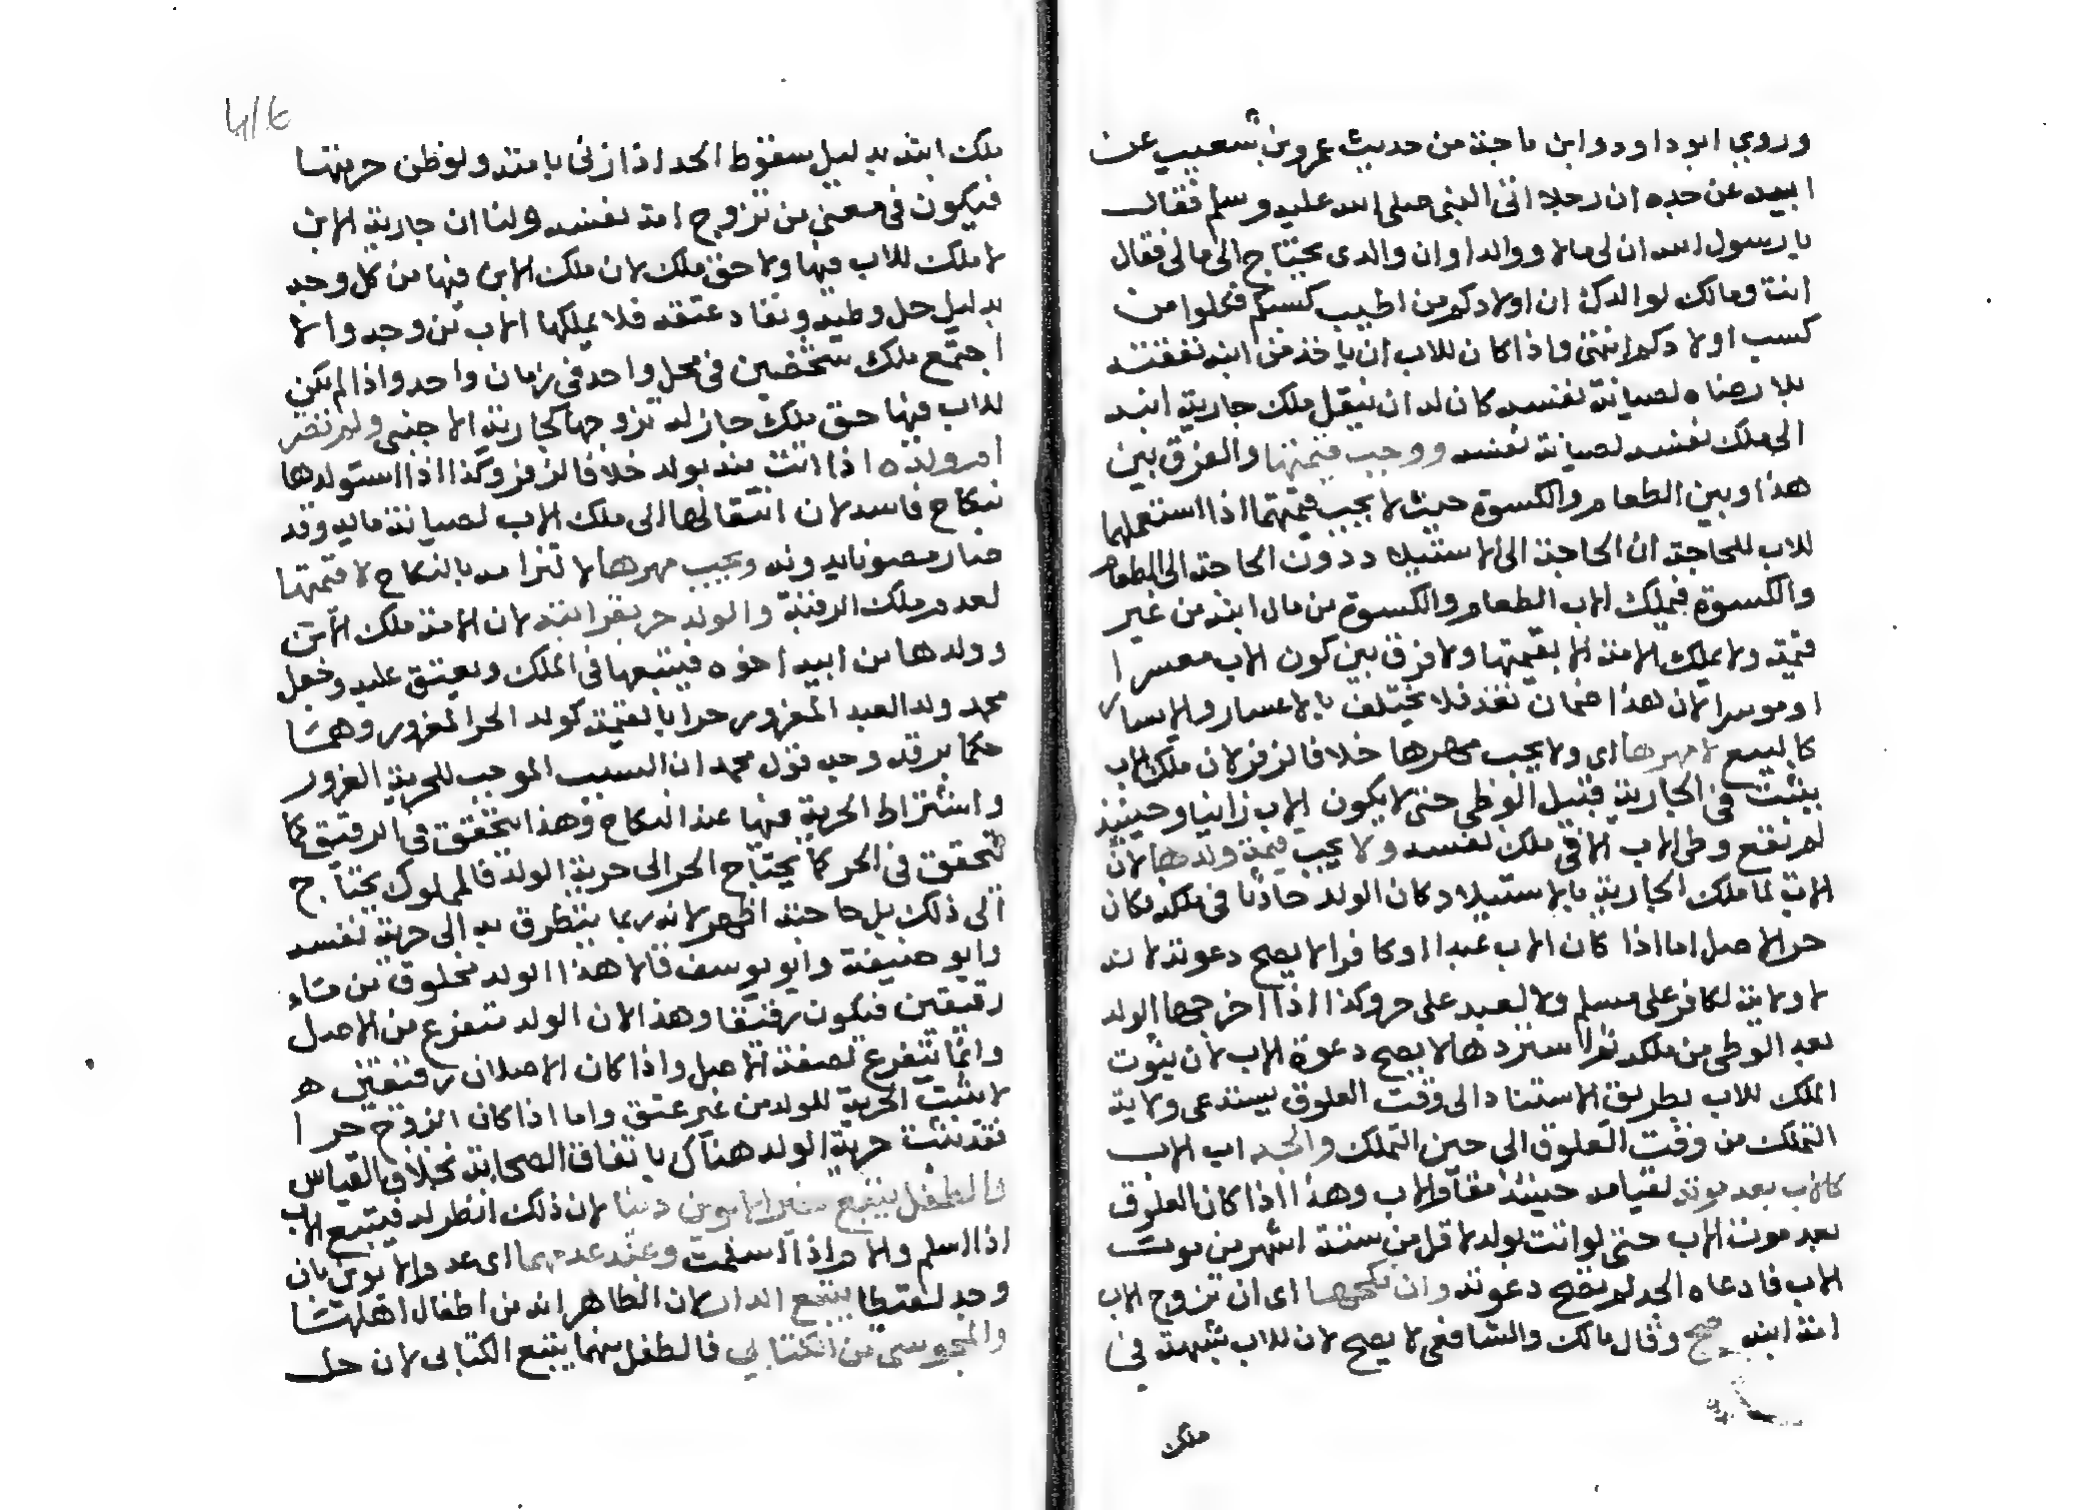 وروي ابو داود وابن ماجة من حديث عمرو بن شعيب عن
ابيه عن جده ان رجلا اتى النبي صلى الله عليه وسلم فقال
يا رسول الله ان لي مالا ووالدا وان والدي يحتاج الى مالي فقال
انت ومالك لوالدك ان اولادكم من اطيب كسبكم فكلوا من
كسب اولادكم انتهى واذا كان للاب ان ياخذ من ابنه نفقته
بلا رضاه لصيانة نفسه كان له ان ينقل ملك جارية ابنه
الى ملك نفسه لصيانة نفسه ووجب قيمتها والفرق بين
هذا وبين الطعام والكسوة حيث لا يجب قيمتهما اذا استعملهما
للاب للحاجة ان الحاجة الى الاستيلاد دون الحاجة الى الطعام
والكسوة فيملك الاب الطعام والكسوة من مال ابنه من غير
قيمة ولا يملك الامة الا بقيمتها ولا فرق بين كون الاب معسرا
او موسرا لان هذا ضمان نقد فلا يختلف بالاعسار والايسار
كالبيع لا مهرها اي ولا يجب مهرها خلافا لزفر لان ملك الاب
يثبت في الجارية قبيل الوطي حتى لا يكون الاب زانيا وحينئذ
لم يقع وطي الاب الا في ملك نفسه ولا يجب قيمة ولدها لان
الاب لما ملك الجارية بالاستيلاد كان الولد حادثا في ملكه فكان
حر الاصل اما اذا كان الاب عبدا او كافرا لا يصح دعوته لانه
لا ولاية لكافر على مسلم ولا لعبد على حر وكذا اذا اخرجها الولد
بعد الوطي من ملكه ثم استردها لا يصح دعوة الاب لان ثبوت
الملك للاب بطريق الاستناد الى وقت العلوق يستدعي ولاية
التملك من وقت العلوق الى حين التملك والجد اب الاب
كالاب بعد موته لقيامه حينئذ مقام الاب وهذا اذا كان العلوق
بعد موت الاب حتى لو اتت بولد لاقل من ستة اشهر من موت
الاب فادعاه الجد لم تصح دعوته وان نكحها اي ان تزوج الاب
امة ابنه صح وقال مالك والشافعي لا يصح لان للاب شبهة في
ملك
ملك ابنه بدليل سقوط الحد اذا زنى بامته ولو ظن حرمتها
فيكون في معنى من تزوج امة نفسه ولنا ان جارية الابن
لا ملك للاب فيها ولا حق ملك لان ملك الابن فيها من كل وجه
بدليل حل وطيه ونفاد عتقه فلا يملكها الاب من وجه والا
اجتمع ملك شخصين في محل واحد في زمان واحد واذا لم يكن
للاب فيها حق ملك جاز له تزوجها كجارية الاجنبي ولم تصر
ام ولده اذا اتت منه بولد خلافا لزفر وكذا اذا استولدها
بنكاح فاسد لان انتقالها الى ملك الاب لصيانة مايه وقد
صار مصونا بدونه ويجب مهرها لالتزامه بالنكاح لا قيمتها
لعدم ملك الرقبة والولد حر بقرابته لان الامة ملك الابن
وولدها من ابيه اخوه فيتبعها في الملك ويعتق عليه وجعل
محمد ولد العبد المغرور حرا بالقيمة كولد الحر المغرور وهما
حكما برقه وجه قول محمد ان السبب الموجب للحرية الغرور
واشتراط الحرية فيها عند النكاح وهذا يتحقق في الرقيق كما
يتحقق في الحر كما يحتاج الحر الى حرية الولد فالمملوك يحتاج
الى ذلك بل حاجته اظهر لانه ربما يتطرق به الى حرية نفسه
وابو حنيفة وابو يوسف قالا هذا الولد مخلوق من ماء
رقيقين فيكون رقيقا وهذا لان الولد متفرع من الاصل
وانما تتفرع لصفة الاصل واذا كان الاصلان رقيقين
لا يثبت الحرية للولد من غير عتق واما اذا كان الزوج حرا
فقد ثبت حرية الولد هناك باتفاق الصحابة بخلاف القياس
والطفل يتبع خير الابوين دينا لان ذلك انظر له فيتبع الاب
اذا اسلم والام اذا اسلمت وعند عدمهما اي عدم الابوين بان
وجد لقيطا يتبع الدار لان الظاهر انه من اطفال اهلها
والمجوسي من الكتابي فالطفل منهما يتبع الكتابي لان حل